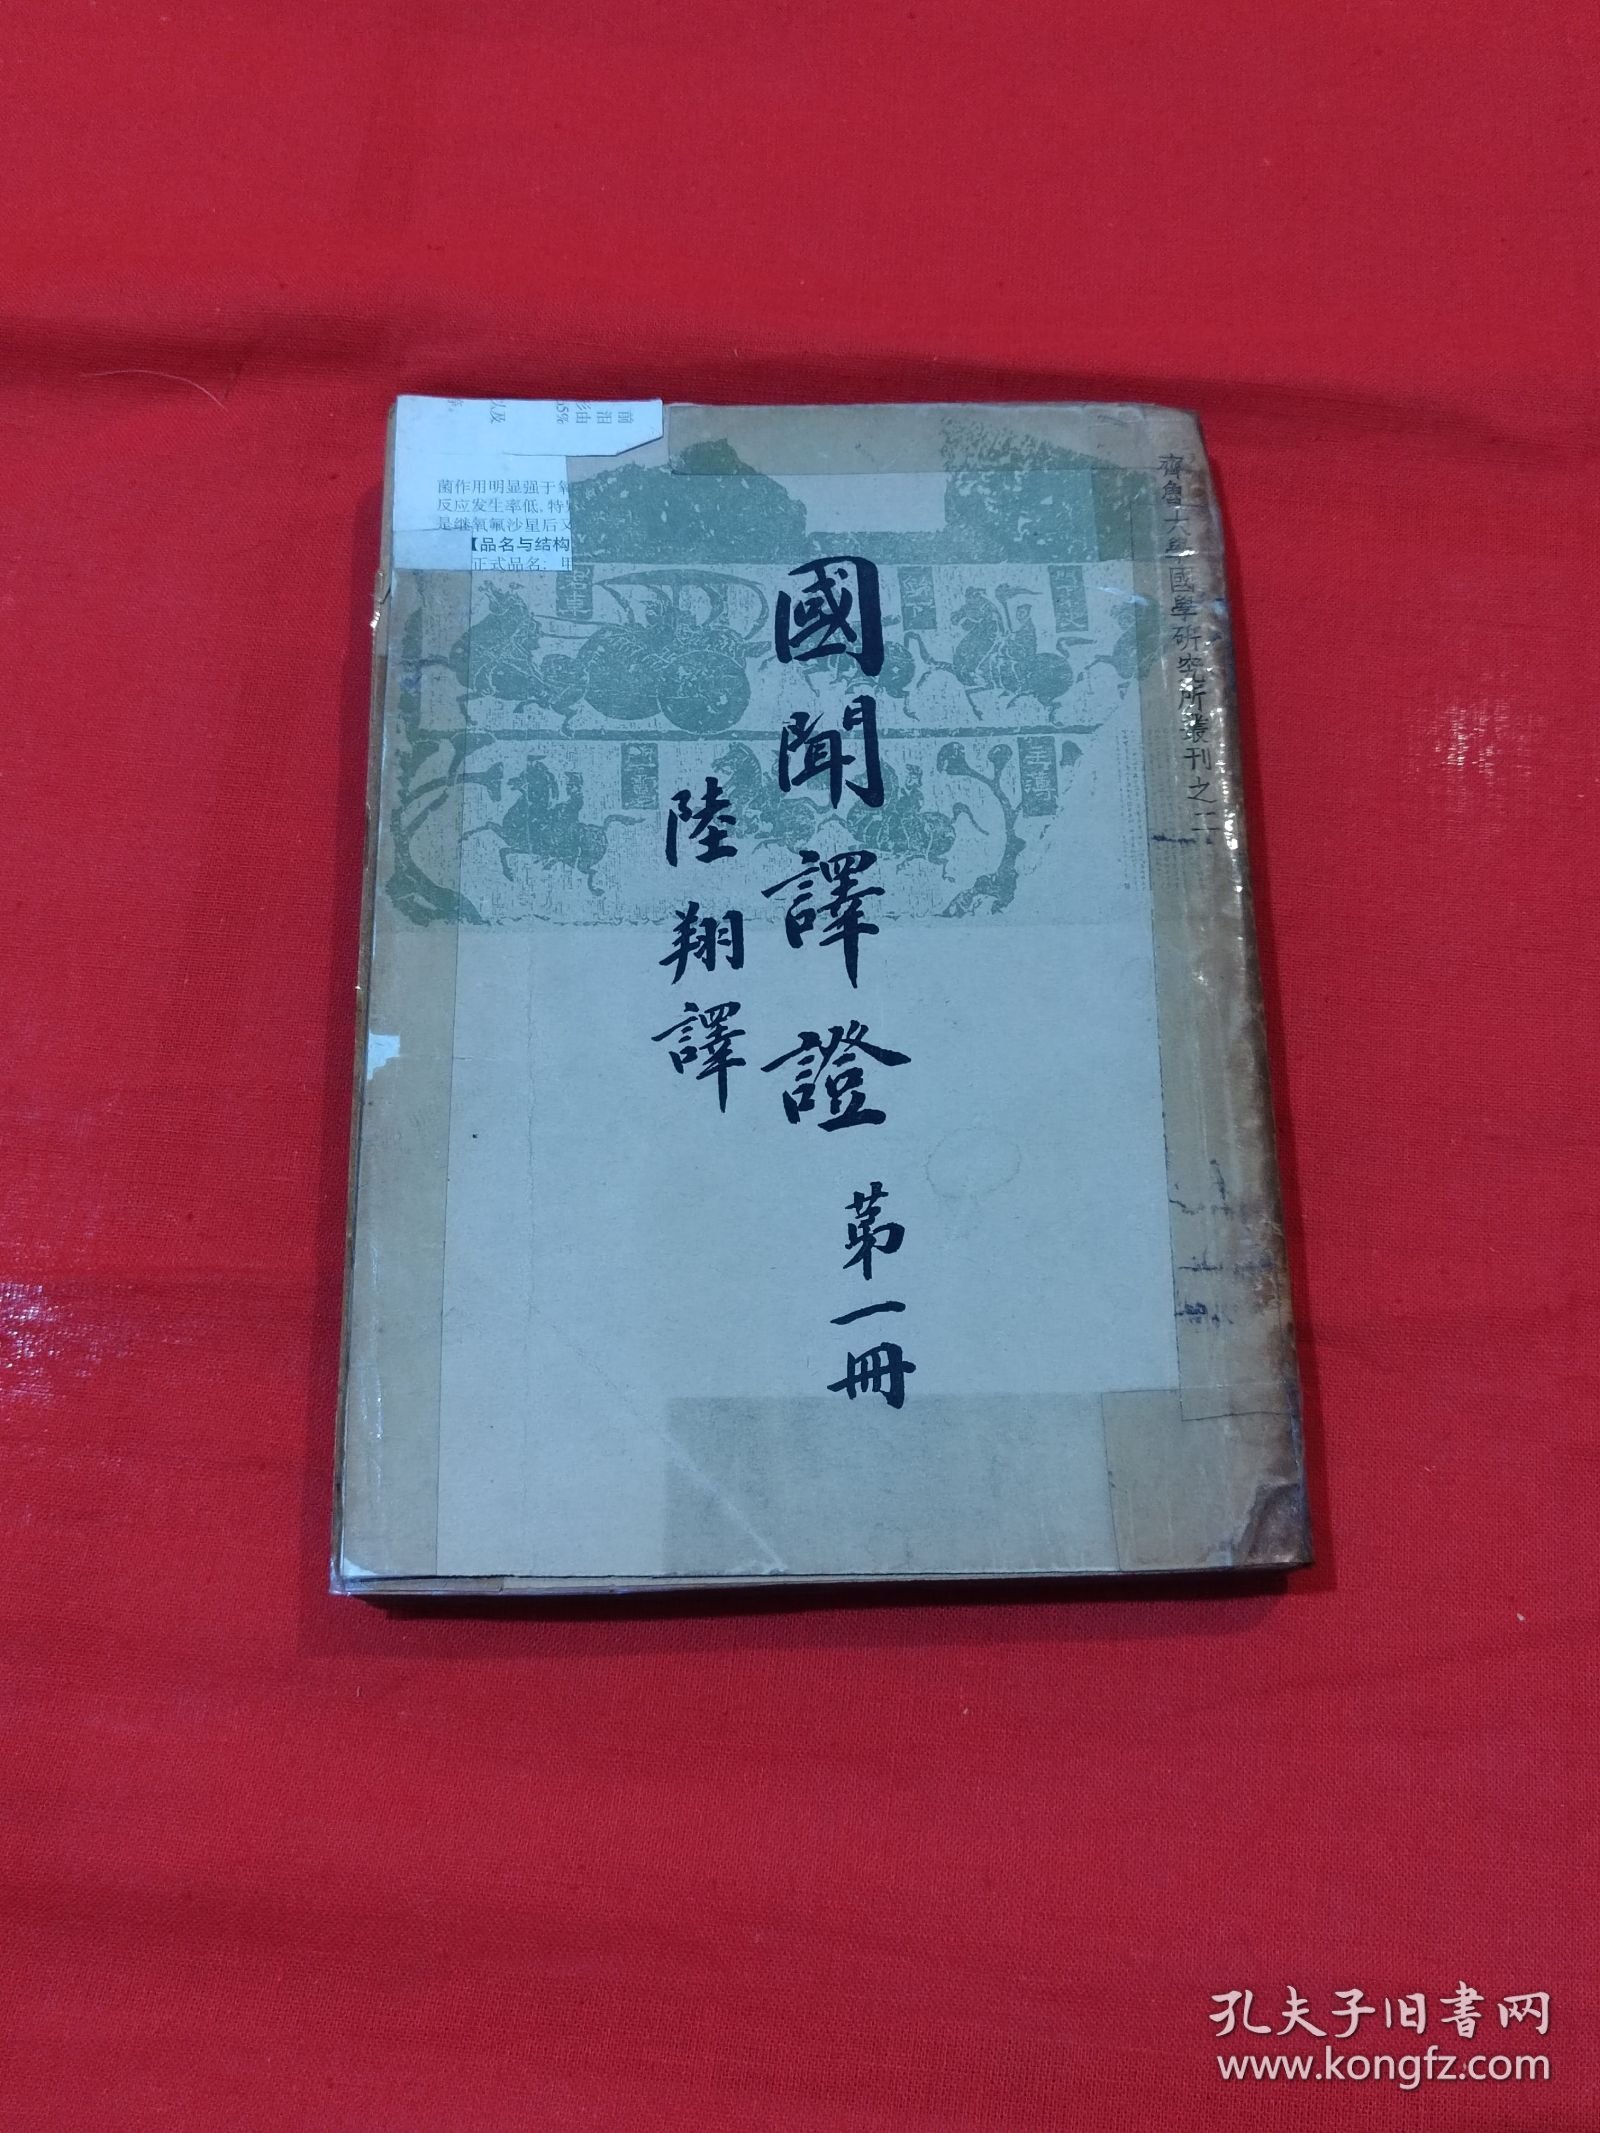 齊魯大學國學研究所叢刊之二
國聞譯證
第一冊
陸翔譯
以及
65%
菌作用明显强于氧
反应发生率低,特别
是继氧氟沙星后又
【品名与结构
正式品名:甲
孔夫子旧书网
www.kongfz.com